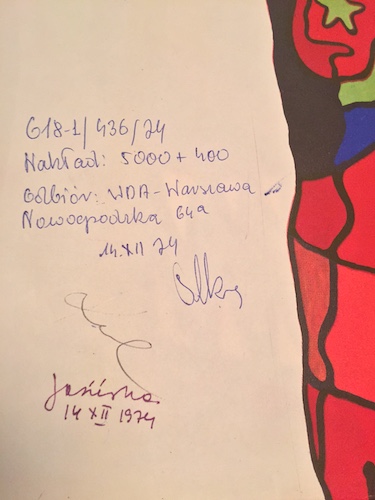 618-1/436/74
Nakład: 5000 + 400
Odbiór: WDA-Warszawa
Nowogrodzka 64a
14.XII 74
14 XII 1974